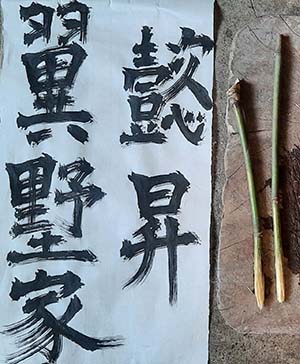 懿昇
翼墅家